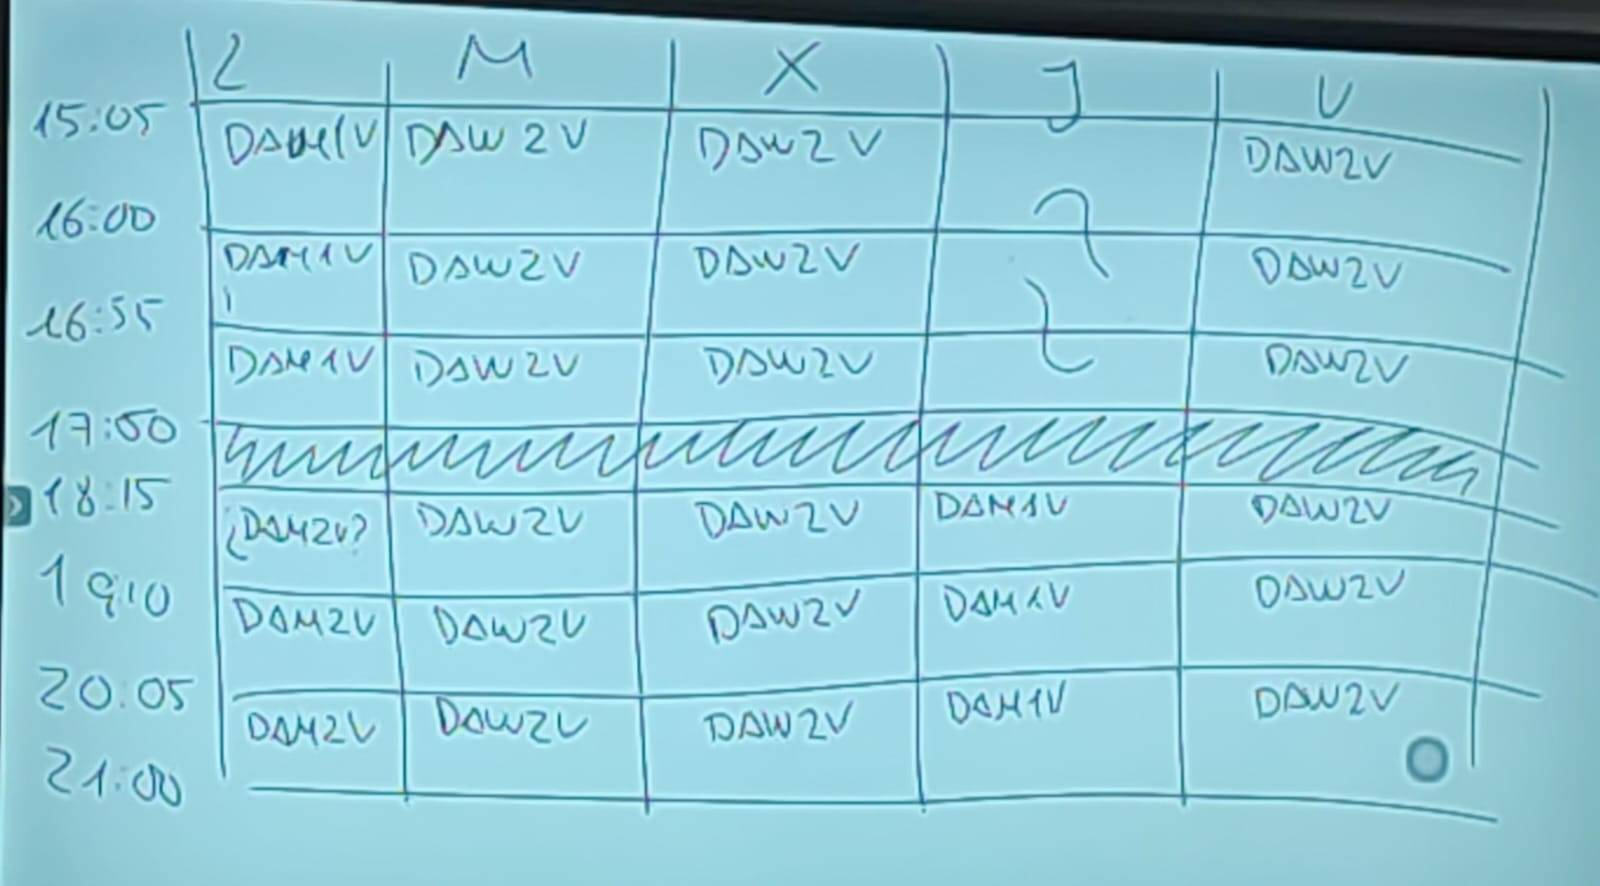 L M X J V
15:05
DAM1V DAW2V DAW2V DAW2V
16:00
DAM1V DAW2V DAW2V DAW2V
16:55
DAM1V DAW2V DAW2V DAW2V
17:50
18:15
¿DAM2V? DAW2V DAW2V DAM1V DAW2V
19:10
DAM2V DAW2V DAW2V DAM1V DAW2V
20:05
DAM2V DAW2V DAW2V DAM1V DAW2V
21:00